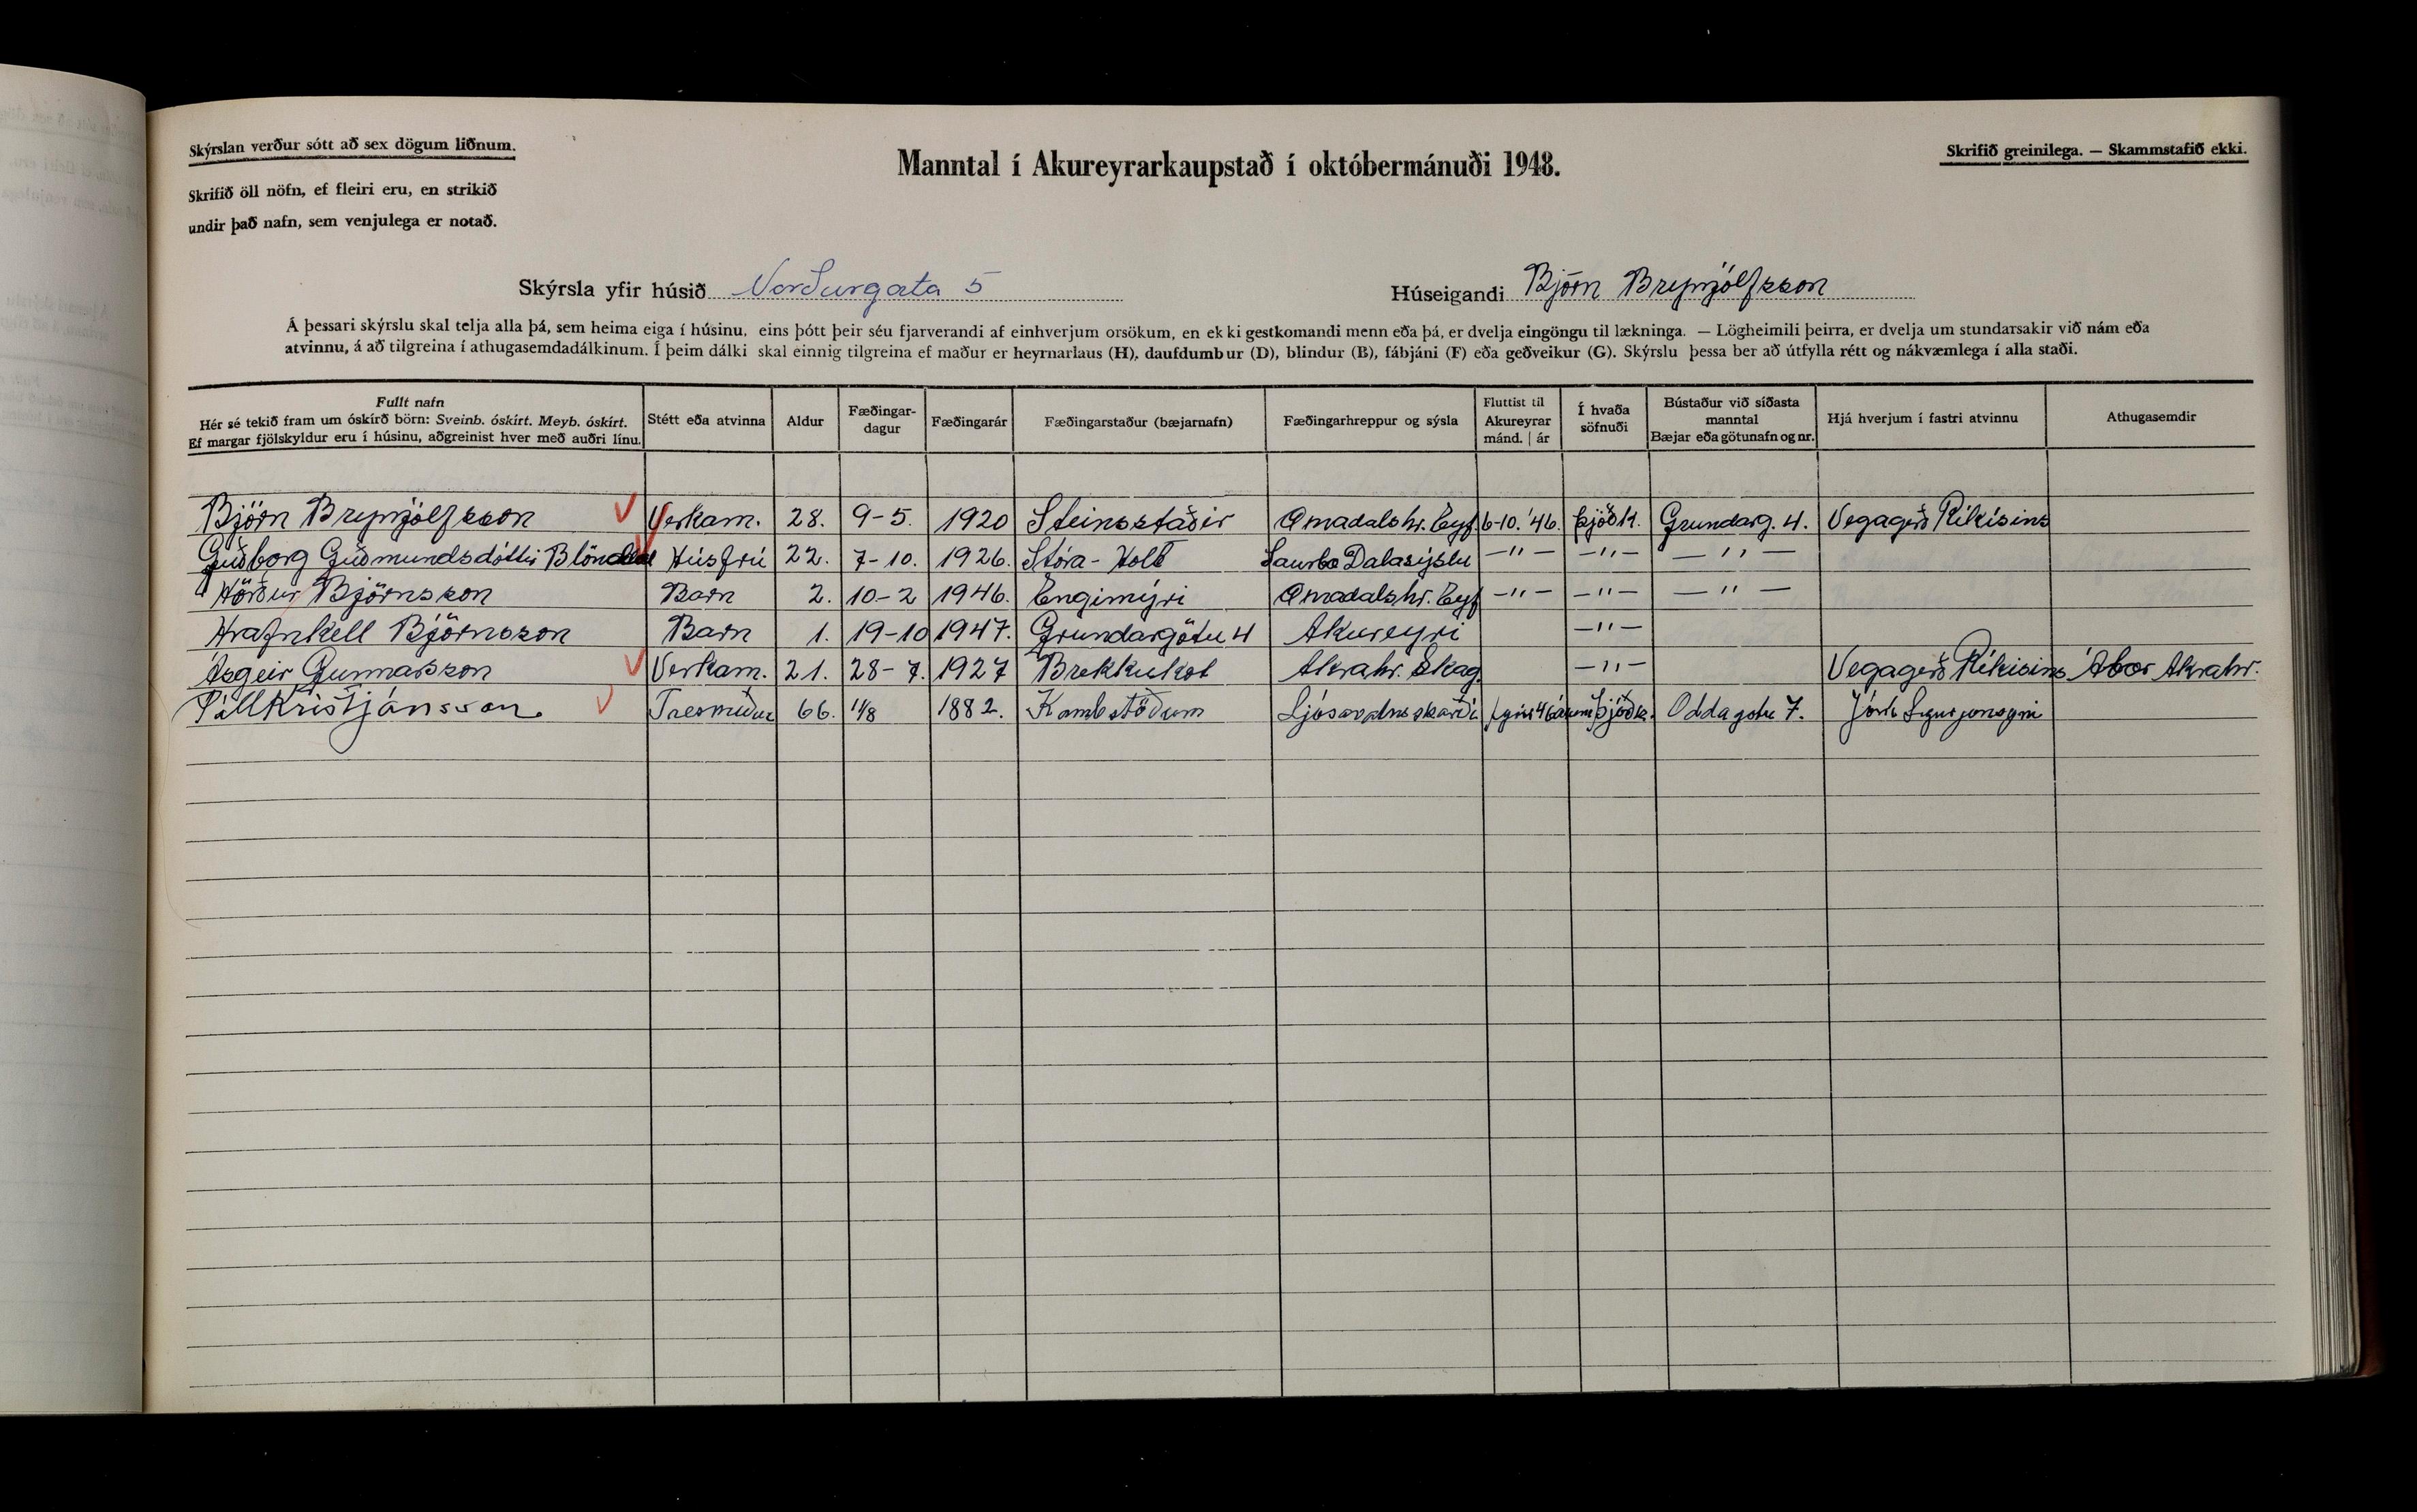 Skýrslan verður sótt að sex dögum liðnum.
Skrifið öll nöfn, ef fleiri eru, en strikið
undir það nafn, sem venjulega er notað.
Manntal í Akureyrarkaupstað í októbermánuði 1948.
Skrifið greinilega. — Skammstafið ekki.
Skýrsla yfir húsið Norðurgata 5
Húseigandi Björn Brynjólfsson
Á þessari skýrslu skal telja alla þá, sem heima eiga í húsinu, eins þótt þeir séu fjarverandi af einhverjum orsökum, en ekki gestkomandi menn eða þá, er dvelja eingöngu til lækninga. — Lögheimili þeirra, er dvelja um stundarsakir við nám eða
atvinnu, á að tilgreina í athugasemdadálkinum. Í þeim dálki skal einnig tilgreina ef maður er heyrnarlaus (H), daufdumbur (D), blindur (B), fábjáni (F) eða geðveikur (G). Skýrslu þessa ber að útfylla rétt og nákvæmlega í alla staði.
Fullt nafn
Hér sé tekið fram um óskírð börn: Sveinb. óskírt. Meyb. óskírt.
Ef margar fjölskyldur eru í húsinu, aðgreinist hver með auðri línu.
Stétt eða atvinna
Aldur
Fæðingar-
dagur
Fæðingarár
Fæðingarstaður (bæjarnafn)
Fæðingarhreppur og sýsla
Fluttist til
Akureyrar
mánd. | ár
Í hvaða
söfnuði
Bústaður við síðasta
manntal
Bæjar eða götunafn og nr.
Hjá hverjum í fastri atvinnu
Athugasemdir
Björn Brynjólfsson Verkam. 28. 9-5. 1920 Steinsstaðir Öxnadalshr. Eyf. 6-10. '46. Þjóðk. Grundarg. 4. Vegagerð Ríkisins
Guðborg Guðmundsdóttir Blöndal Húsfrú 22. 7-10. 1926. Stóra-Holt Saurbæ Dalasýslu —"— —"— —"—
Hörður Björnsson Barn 2. 10-2 1946. Engimýri Öxnadalshr. Eyf —"— —"— —"—
Hrafnkell Björnsson Barn 1. 19-10 1947. Grundargötu 4 Akureyri —"—
Ásgeir Gunnarsson Verkam. 21. 28-7. 1927 Brekkukot Akrahr. Skag. —"— Vegagerð Ríkisins Akrahr.
Páll Kristjánsson Tresmiður 66. 1/8 1882. Kambstöðum Ljósavatnsskarði fyrir 46 árum Þjóðk. Oddagötu 7.